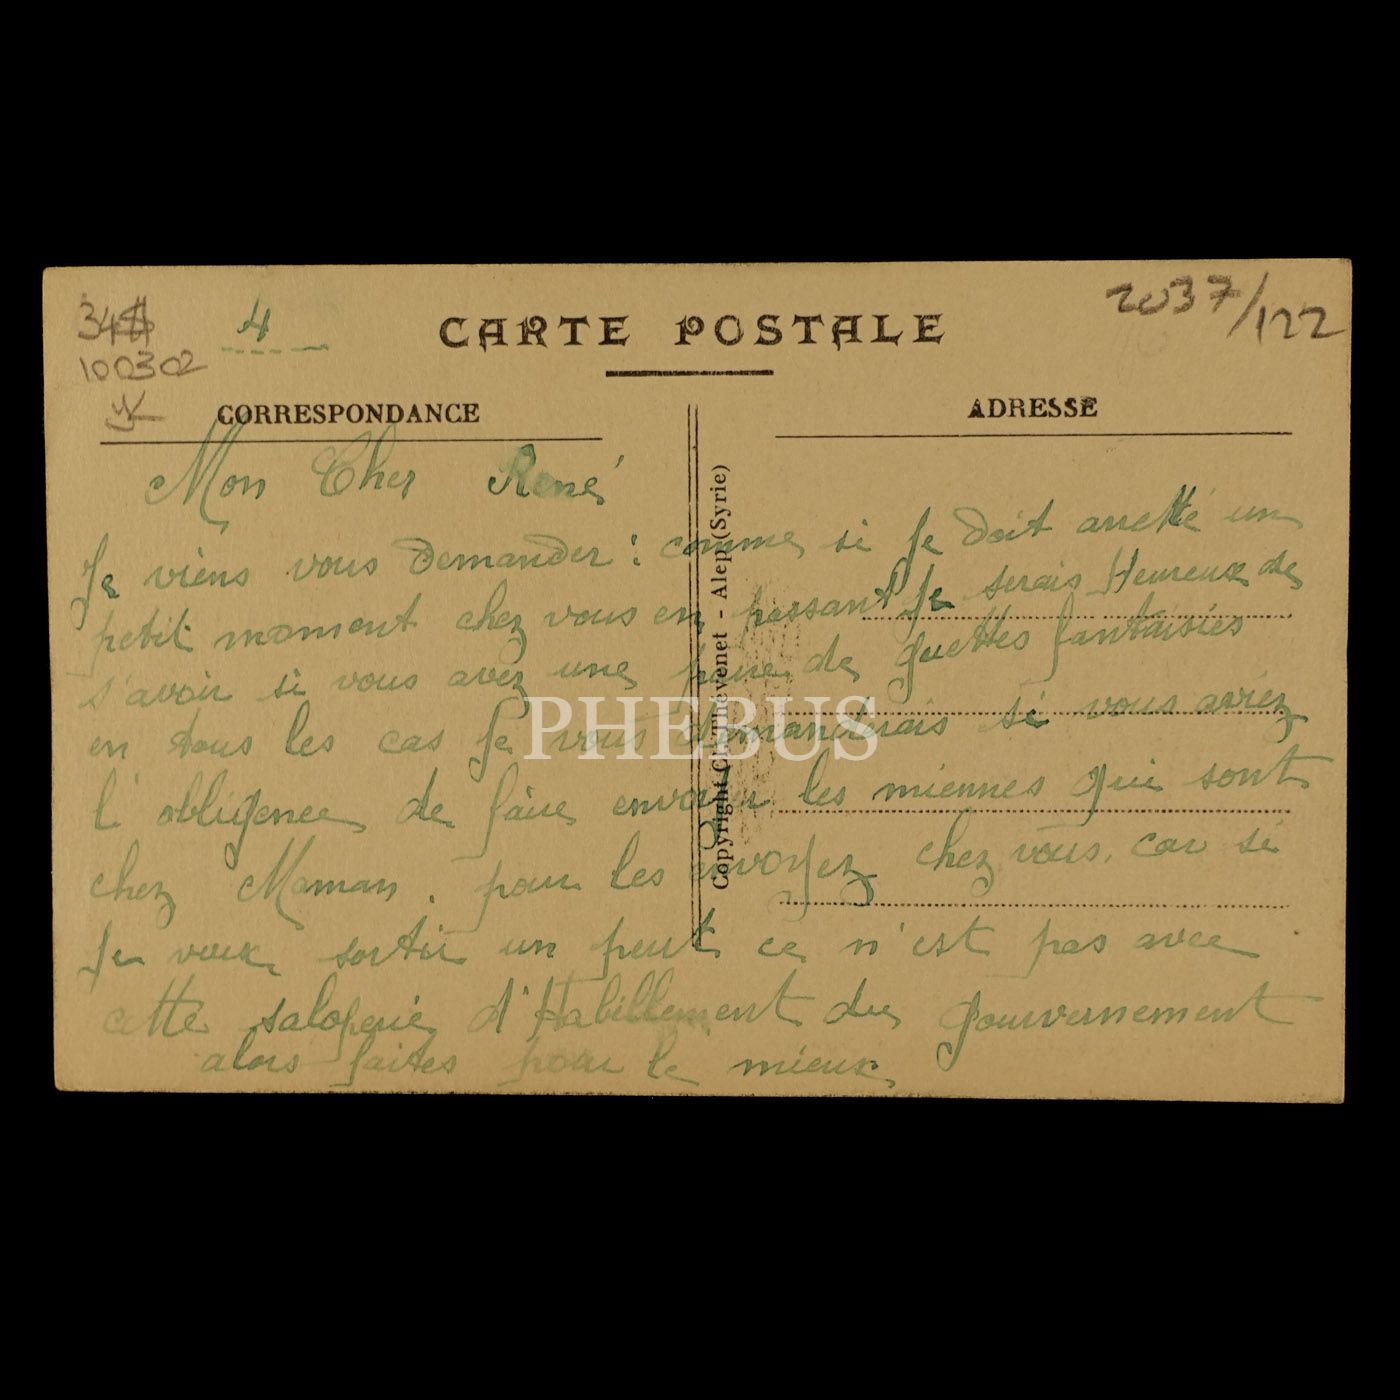 34$
100302
4
2037/122
CARTE POSTALE
CORRESPONDANCE
ADRESSE
Copyright Charnévenet - Alep (Syrie)
Mon Cher René
Je viens vous demander : comme si Je doit arretté un
petit moment chez vous en passant Je serais Heureux de
s'avoir si vous avez une paire de guettes fantaisies
en tous les cas Je vous demanderais si vous aviez
l'obligence de faire envoyer les miennes qui sont
chez Maman. pour les envoyez chez vous. car si
Je veux sortir un peut ce n'est pas avec
cette saloperie d'Habillement du gouvernement
alors faites pour le mieux
PHEBUS